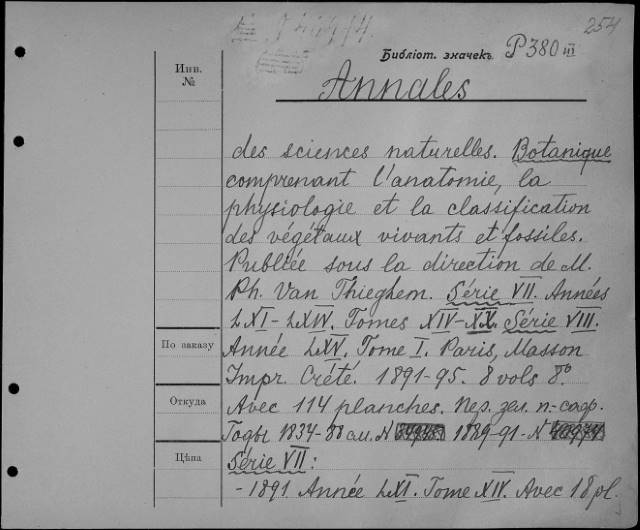 254
Библіот. значекъ P380 III
Инв. №
Annales
des sciences naturelles. Botanique
comprenant l'anatomie, la
physiologie et la classification
des végétaux vivants et fossiles.
Publiée sous la direction de M.
Ph. Van Thieghem. Série VII. Années
LXI-LXIV. Tomes XIV-XX. Série VIII.
По заказу
Année LXV. Tome I. Paris, Masson
Impr. Crété. 1891-95. 8 vols 8°.
Откуда
Avec 114 planches. Пер. зел. п.-саф.
Годы 1834-88 см. N 1889-91-N
Цѣна
Série VII:
- 1891 Année LXI. Tome XIV. Avec 18 pl.